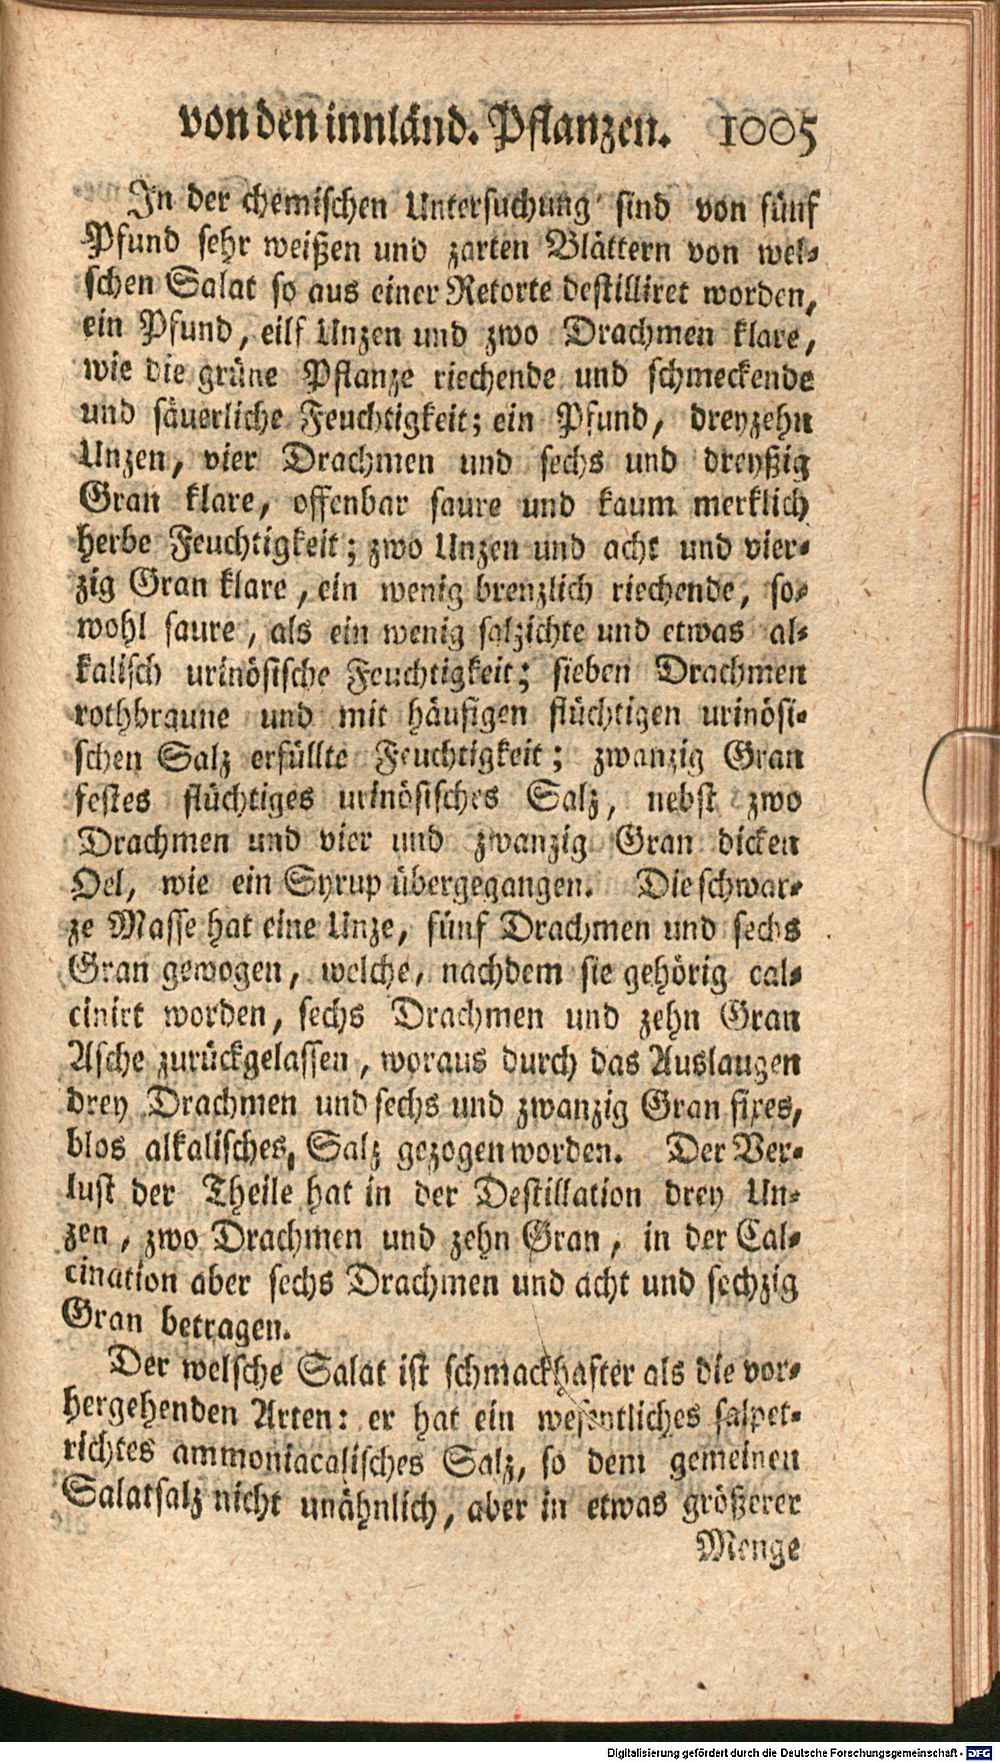 von den innländ. Pflanzen. 1005
In der chemischen Untersuchung sind von fünf
Pfund sehr weißen und zarten Blättern von wel-
schen Salat so aus einer Retorte destilliret worden,
ein Pfund, eilf Unzen und zwo Drachmen klare,
wie die grüne Pflanze riechende und schmeckende
und säuerliche Feuchtigkeit; ein Pfund, dreyzehn
Unzen, vier Drachmen und sechs und dreyßig
Gran klare, offenbar saure und kaum merklich
herbe Feuchtigkeit; zwo Unzen und acht und vier-
zig Gran klare, ein wenig brenzlich riechende, so-
wohl saure, als ein wenig salzichte und etwas al-
kalisch urinösische Feuchtigkeit; sieben Drachmen
rothbraune und mit häufigen flüchtigen urinösi-
schen Salz erfüllte Feuchtigkeit; zwanzig Gran
festes flüchtiges urinösisches Salz, nebst zwo
Drachmen und vier und zwanzig Gran dicken
Oel, wie ein Syrup übergegangen. Die schwar-
ze Masse hat eine Unze, fünf Drachmen und sechs
Gran gewogen, welche, nachdem sie gehörig cal-
cinirt worden, sechs Drachmen und zehn Gran
Asche zurückgelassen, woraus durch das Auslaugen
drey Drachmen und sechs und zwanzig Gran fixes,
blos alkalisches, Salz gezogen worden. Der Ver-
lust der Theile hat in der Destillation drey Un-
zen, zwo Drachmen und zehn Gran, in der Cal-
cination aber sechs Drachmen und acht und sechzig
Gran betragen.
Der welsche Salat ist schmackhafter als die vor-
hergehenden Arten: er hat ein wesentliches salpet-
richtes ammoniacalisches Salz, so dem gemeinen
Salatsalz nicht unähnlich, aber in etwas größerer
Menge
Digitalisierung gefördert durch die Deutsche Forschungsgemeinschaft - DFG